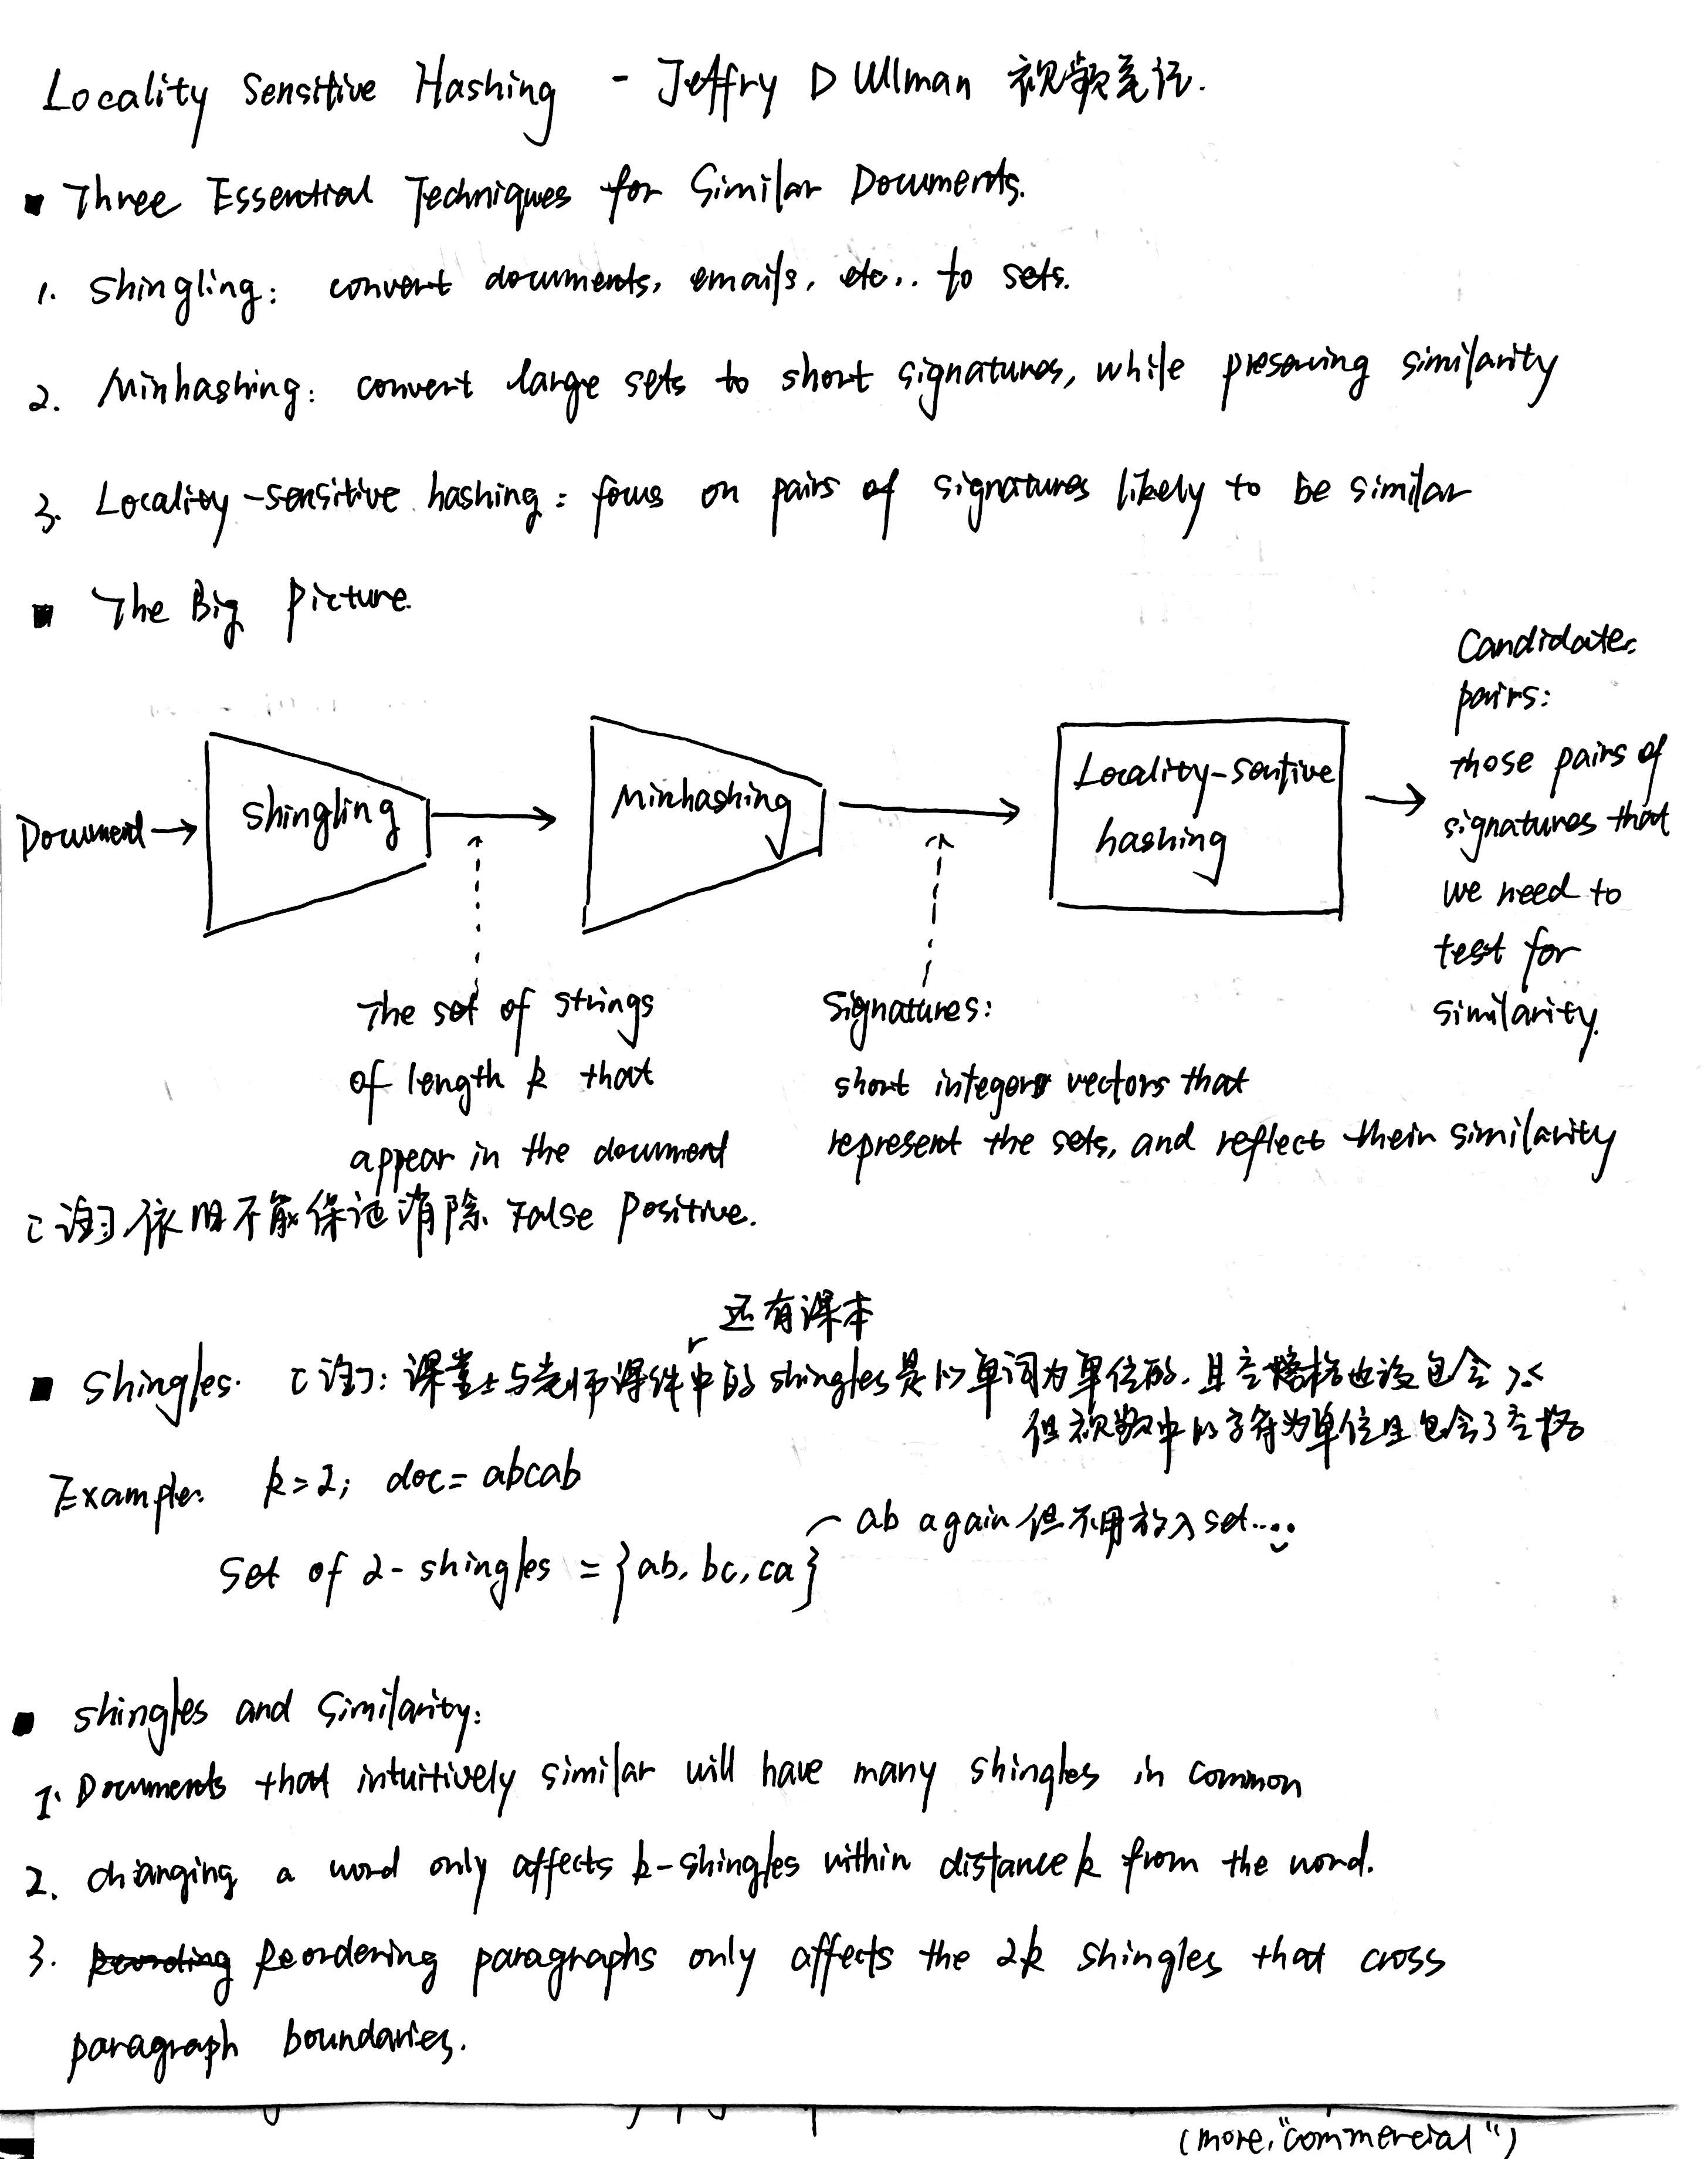 Locality Sensitive Hashing - Jeffry D Ullman 视频笔记.
Three Essential Techniques for Similar Documents.
1. Shingling: convert documents, emails, etc.. to sets.
2. Minhashing: convert large sets to short signatures, while preserving similarity
3. Locality-sensitive hashing: focus on pairs of signatures likely to be similar
The Big Picture.
Document
Shingling
Minhashing
Locality-sentive
hashing
Candidate
pairs:
those pairs of
signatures that
we need to
test for
similarity.
The set of strings
of length k that
appear in the document
Signatures:
short integer vectors that
represent the sets, and reflect their similarity
[注]依旧不能保证消除 False Positive.
还有课本
Shingles. [注]: 课堂上与老师课件中的 shingles 是以单词为单位的, 且空格也没包含
但视频中以字符为单位且包含了空格
Example: k=2; doc=abcab
ab again 但不用放入 set....
Set of 2-shingles = {ab, bc, ca}
shingles and Similarity:
1. Documents that intuitively similar will have many shingles in common
2. changing a word only affects k-shingles within distance k from the word.
3. Reordering paragraphs only affects the 2k shingles that cross
paragraph boundaries.
(more, "commercial")